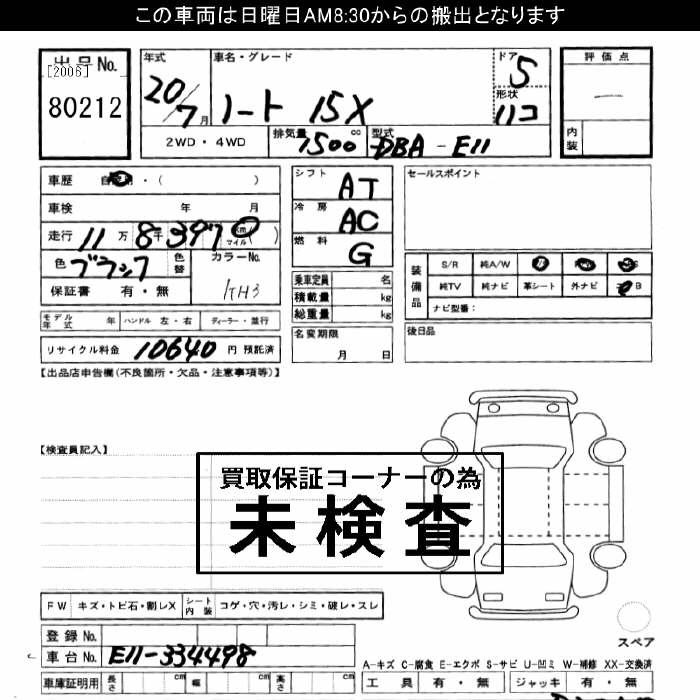 この車両は日曜日AM8:30からの搬出となります
出品No.
[2006]
80212
年式
20/7月
車名・グレード
ノート 15X
ドア
5
形状
ハコ
評価点
—
内装
2WD・4WD
排気量
1500 cc
型式
DBA-E11
車歴 ・( )
車検 年 月
走行 11万 8千 397 ( km マイル )
色 ブラック
色替
カラーNo.
KH3
保証書 有・無
モデル年式 年 ハンドル 左・右 ディーラー・並行
リサイクル料金 10640 円 預託済
シフト AT
冷房 AC
燃料 G
乗車定員 名
積載量 kg
総重量 kg
名変期限
月 日
セールスポイント
装備品
S/R 純A/W
純TV 純ナビ 革シート 外ナビ
ナビ型番:
後日品
【出品店申告欄(不良箇所・欠品・注意事項等)】
【検査員記入】
買取保証コーナーの為
未検査
FW キズ・トビ石・割レX
シート内装 コゲ・穴・汚レ・シミ・破レ・スレ
登録No.
車台No. E11-334498
車庫証明用 長さ cm 幅 cm 高さ cm
スペア
A-キズ C-腐食 E-エクボ S-サビ U-凹ミ W-補修 XX-交換済
工具 有・無 ジャッキ 有・無